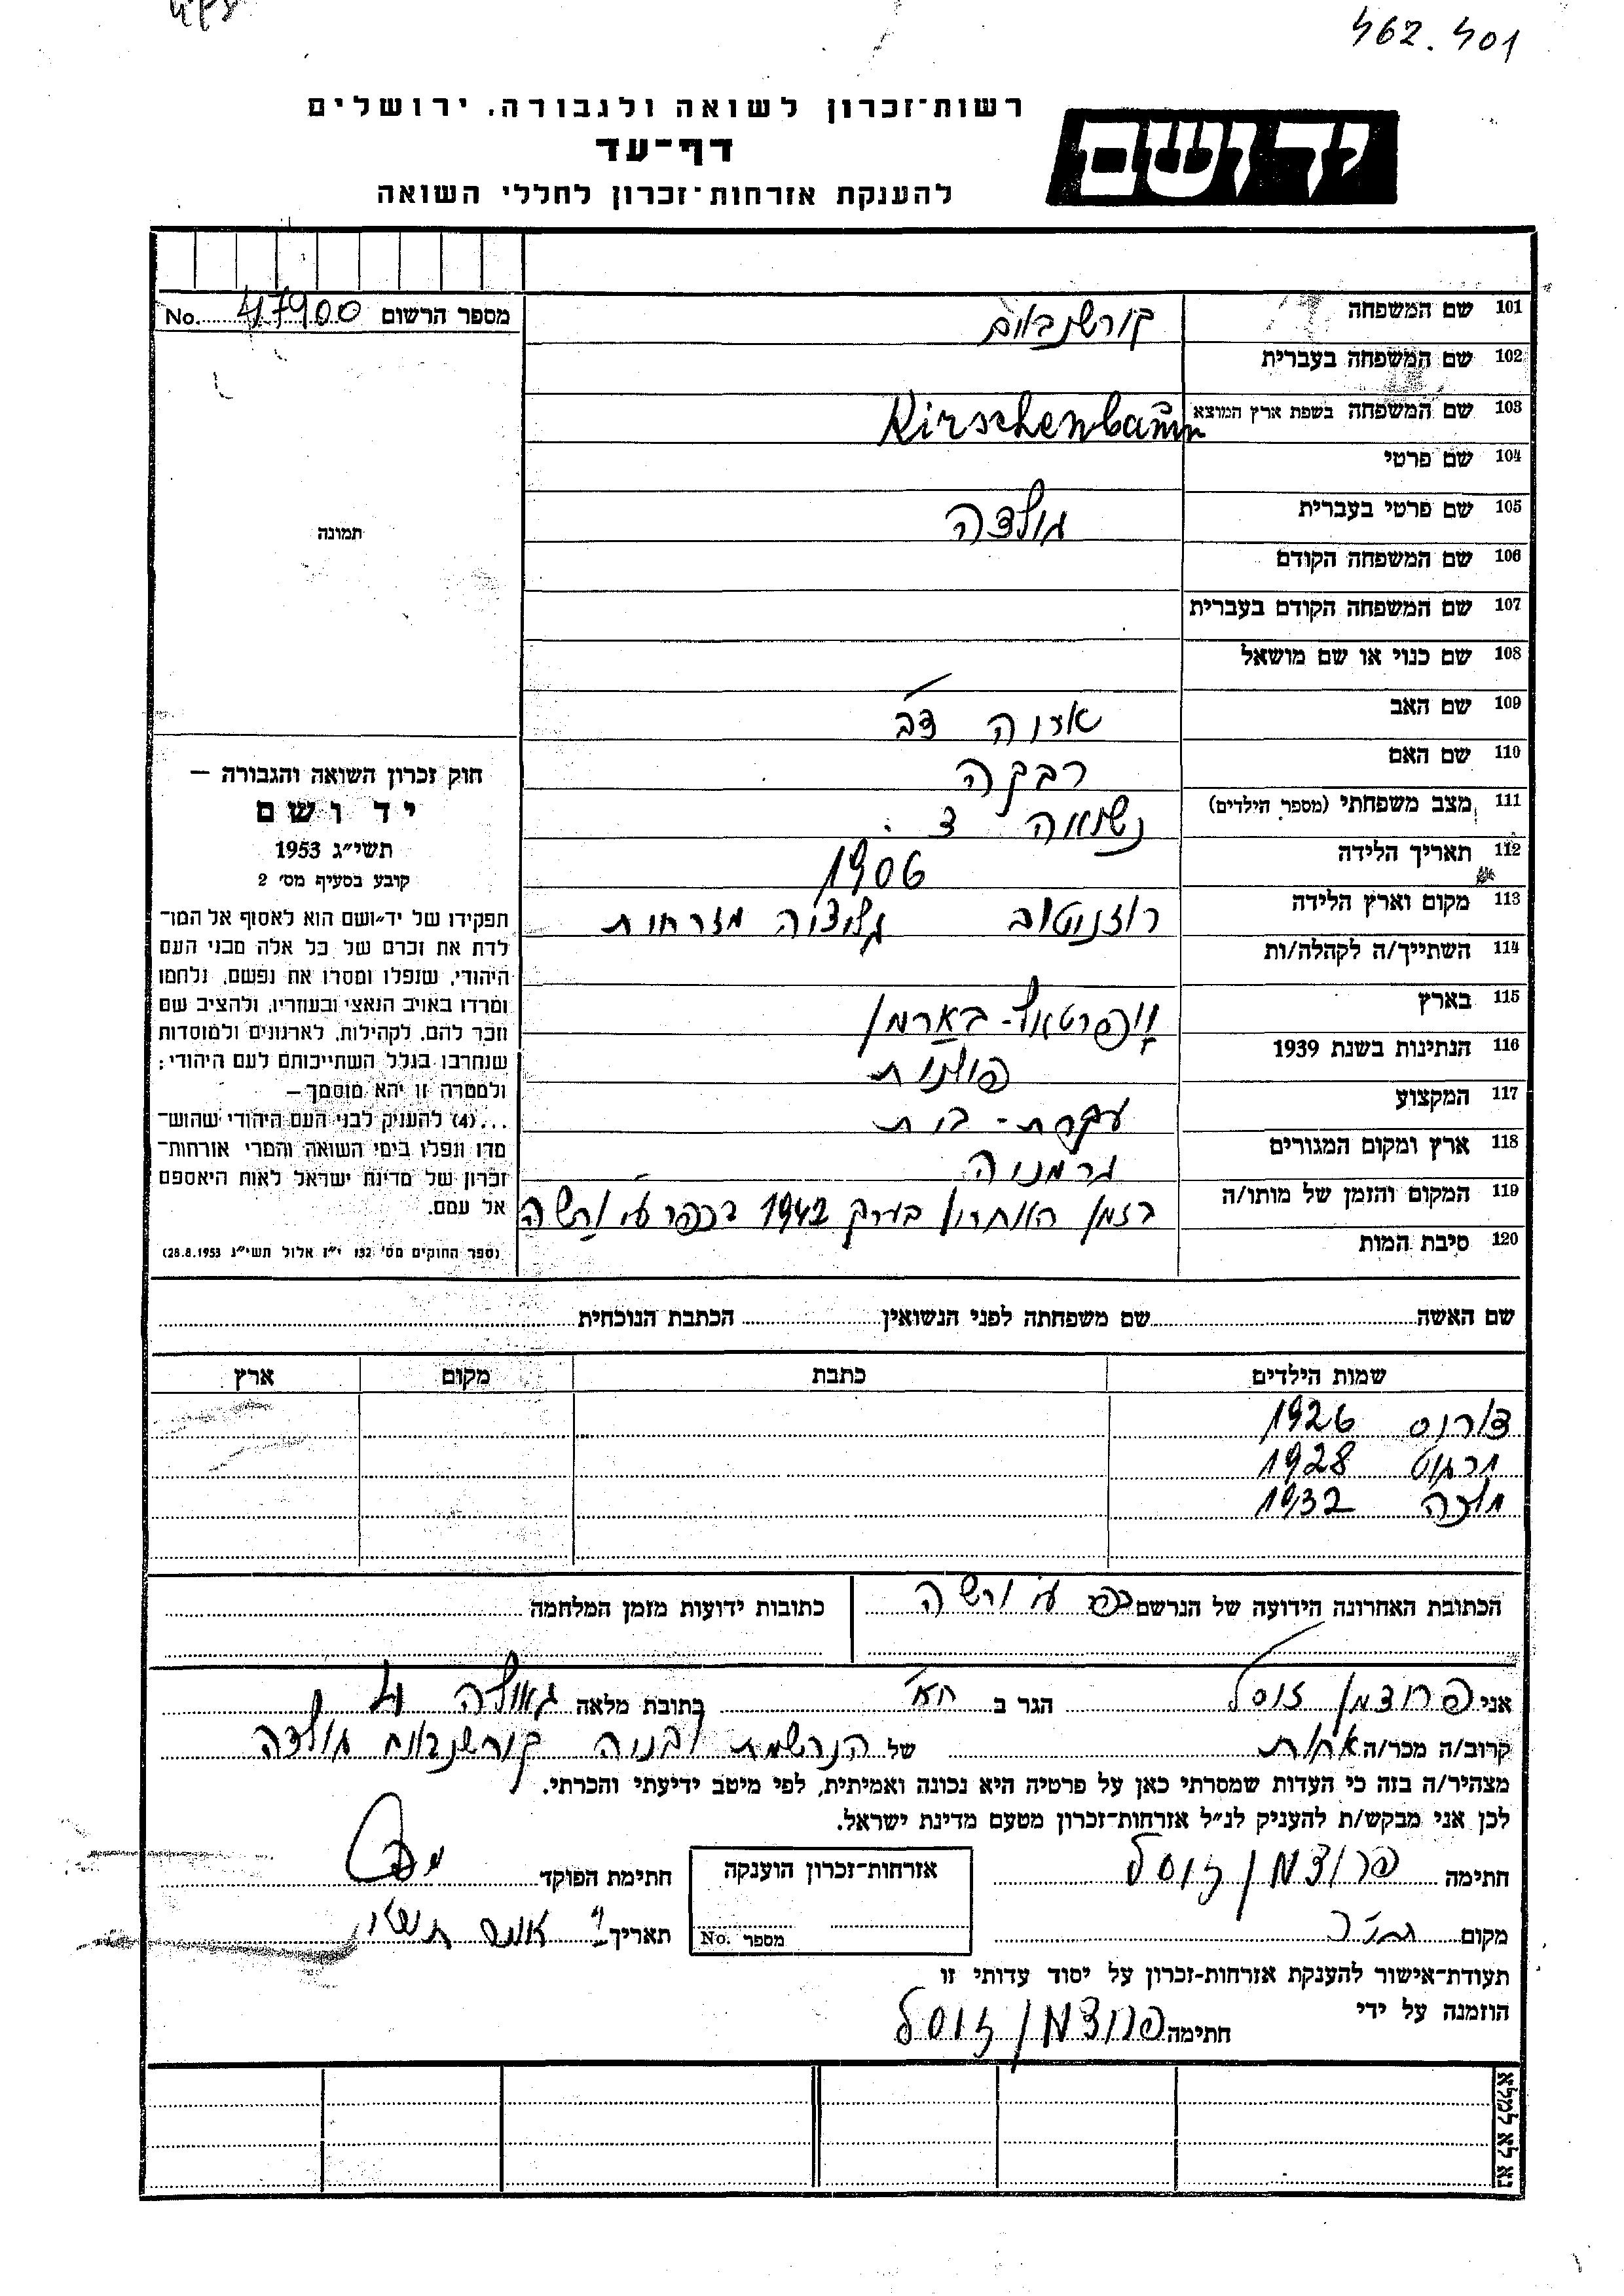 462.401
רשות־זכרון לשואה ולגבורה, ירושלים
דף־עד
להענקת אזרחות־זכרון לחללי השואה
יד ושם
מספר הרשום 47900 No.
101 שם המשפחה קירשנבאום
102 שם המשפחה בעברית
103 שם המשפחה בשפת ארץ המוצא Kirschenbaum
104 שם פרטי
105 שם פרטי בעברית גולדה
106 שם המשפחה הקודם
107 שם המשפחה הקודם בעברית
108 שם כנוי או שם מושאל
109 שם האב אריה דב
110 שם האם רבקה
111 מצב משפחתי (מספר הילדים) נשואה 3.
112 תאריך הלידה 1906
113 מקום וארץ הלידה רוזניטוב גליציה מזרחית
114 השתייך/ה לקהלה/ות
115 בארץ ווּפרטאל-בארמן
116 הנתינות בשנת 1939 פולנית
117 המקצוע עקרת-בית
118 ארץ ומקום המגורים גרמניה
119 המקום והזמן של מותו/ה בזמן האחרון בערך 1942 בכפר ע״י ורשה
120 סיבת המות
תמונה
חוק זכרון השואה והגבורה –
יד ושם
תשי״ג 1953
קובע בסעיף מס׳ 2
תפקידו של יד־ושם הוא לאסוף אל המו־
לדת את זכרם של כל אלה מבני העם
היהודי, שנפלו ומסרו את נפשם, נלחמו
ומרדו באויב הנאצי ובעוזריו, ולהציב שם
וזכר להם, לקהילות, לארגונים ולמוסדות
שנחרבו בגלל השתייכותם לעם היהודי;
ולמטרה זו יהא מוסמך –
...(4) להעניק לבני העם היהודי שהוש־
מדו ונפלו בימי השואה והמרי אזרחות־
זכרון של מדינת ישראל לאות היאספם
אל עמם.
(ספר החוקים מס׳ 132 י״ז אלול תשי״ג 28.8.1953)
שם האשה שם משפחתה לפני הנשואין הכתבת הנוכחית
שמות הילדים כתבת מקום ארץ
דוריס 1926
מרגוט 1928
1932
הכתובת האחרונה הידועה של הנרשם כפר ע״י ורשה כתובות ידועות מזמן המלחמה
אני פרידמן זיסל הגר ב ת״א כתובת מלאה גאולה
קרוב/ה מכר/ה אחות של הנרשמת ובניה קירשנבאום גולדה
מצהיר/ה בזה כי העדות שמסרתי כאן על פרטיה היא נכונה ואמיתית, לפי מיטב ידיעתי והכרתי.
לכן אני מבקש/ת להעניק לנ״ל אזרחות־זכרון מטעם מדינת ישראל.
חתימה פרידמן זיסל אזרחות־זכרון הוענקה חתימת הפוקד
מקום מספר No. תאריך
תעודת־אישור להענקת אזרחות־זכרון על יסוד עדותי זו
הוזמנה על ידי
חתימה פרידמן זיסל
נא לא למלא